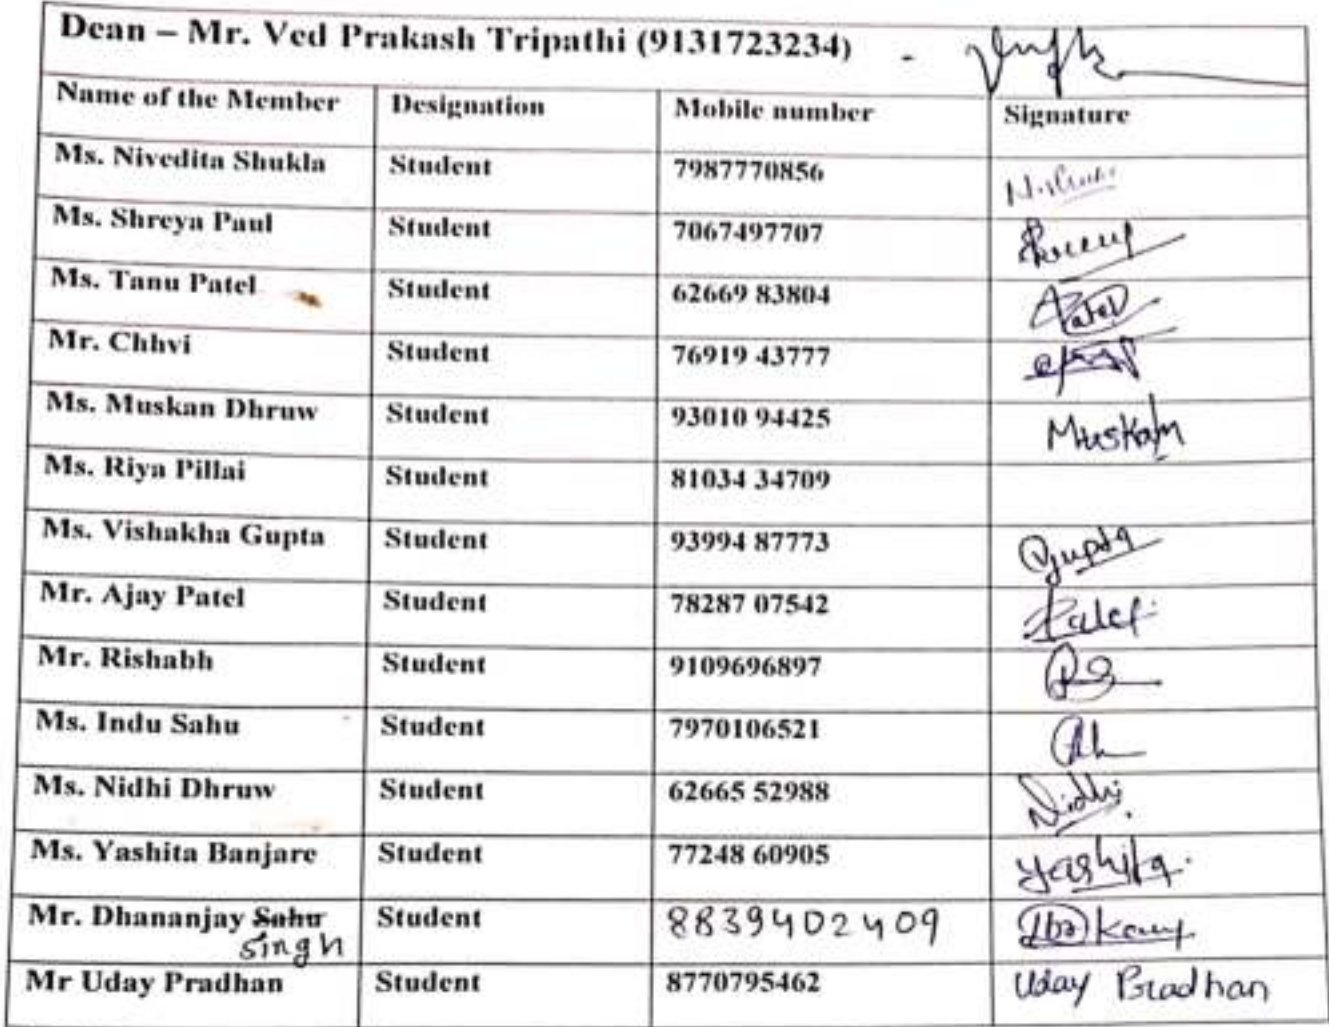 Dean – Mr. Ved Prakash Tripathi (9131723234) -
Name of the Member Designation Mobile number Signature
Ms. Nivedita Shukla Student 7987770856
Ms. Shreya Paul Student 7067497707
Ms. Tanu Patel Student 62669 83804 Patel
Mr. Chhvi Student 76919 43777
Ms. Muskan Dhruw Student 93010 94425 Muskan
Ms. Riya Pillai Student 81034 34709
Ms. Vishakha Gupta Student 93994 87773 Gupta
Mr. Ajay Patel Student 78287 07542
Mr. Rishabh Student 9109696897
Ms. Indu Sahu Student 7970106521
Ms. Nidhi Dhruw Student 62665 52988 Nidhi
Ms. Yashita Banjare Student 77248 60905 Yashita
Mr. Dhananjay Sahu Student 8839402409
Singh
Mr Uday Pradhan Student 8770795462 Uday Pradhan